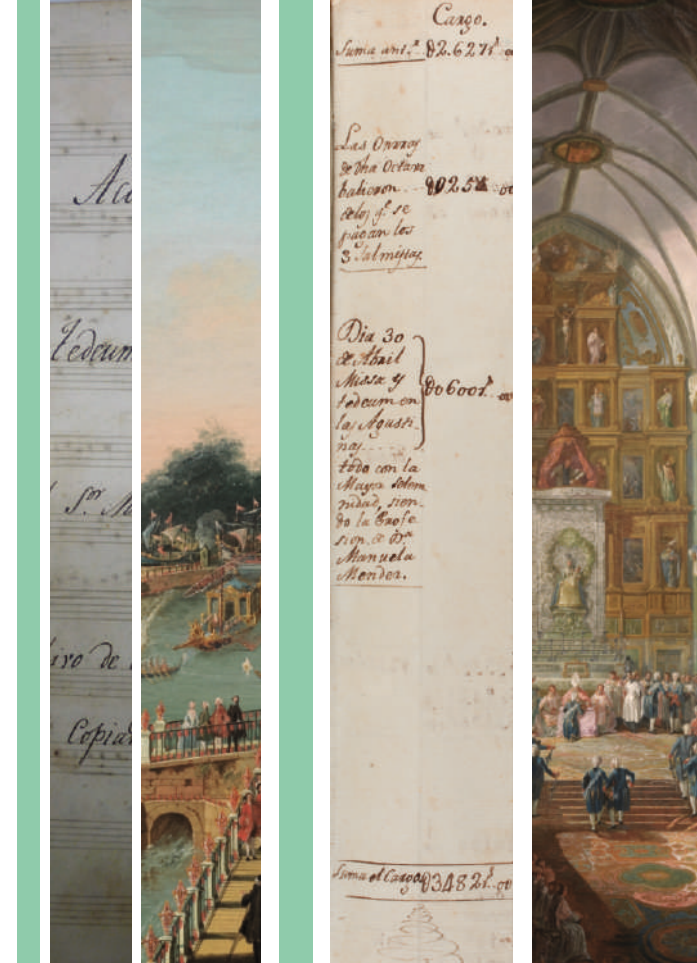 Ac
tedeum
l S.or M
ivo de
Copia
Cargo.
Suma ant.e 02.627
Las Onrras
de dha Octava
balieron 0025
delos q.e se
pagan los
3 Salmistas
Dia 30
de Abril
Missa y
tedeum en
las Agusti-
nas
00600
todo con la
Mayor Solem
nidad, sien-
do la Profe
sion de
Manuela
Mendez.
Suma el Cargo 03482